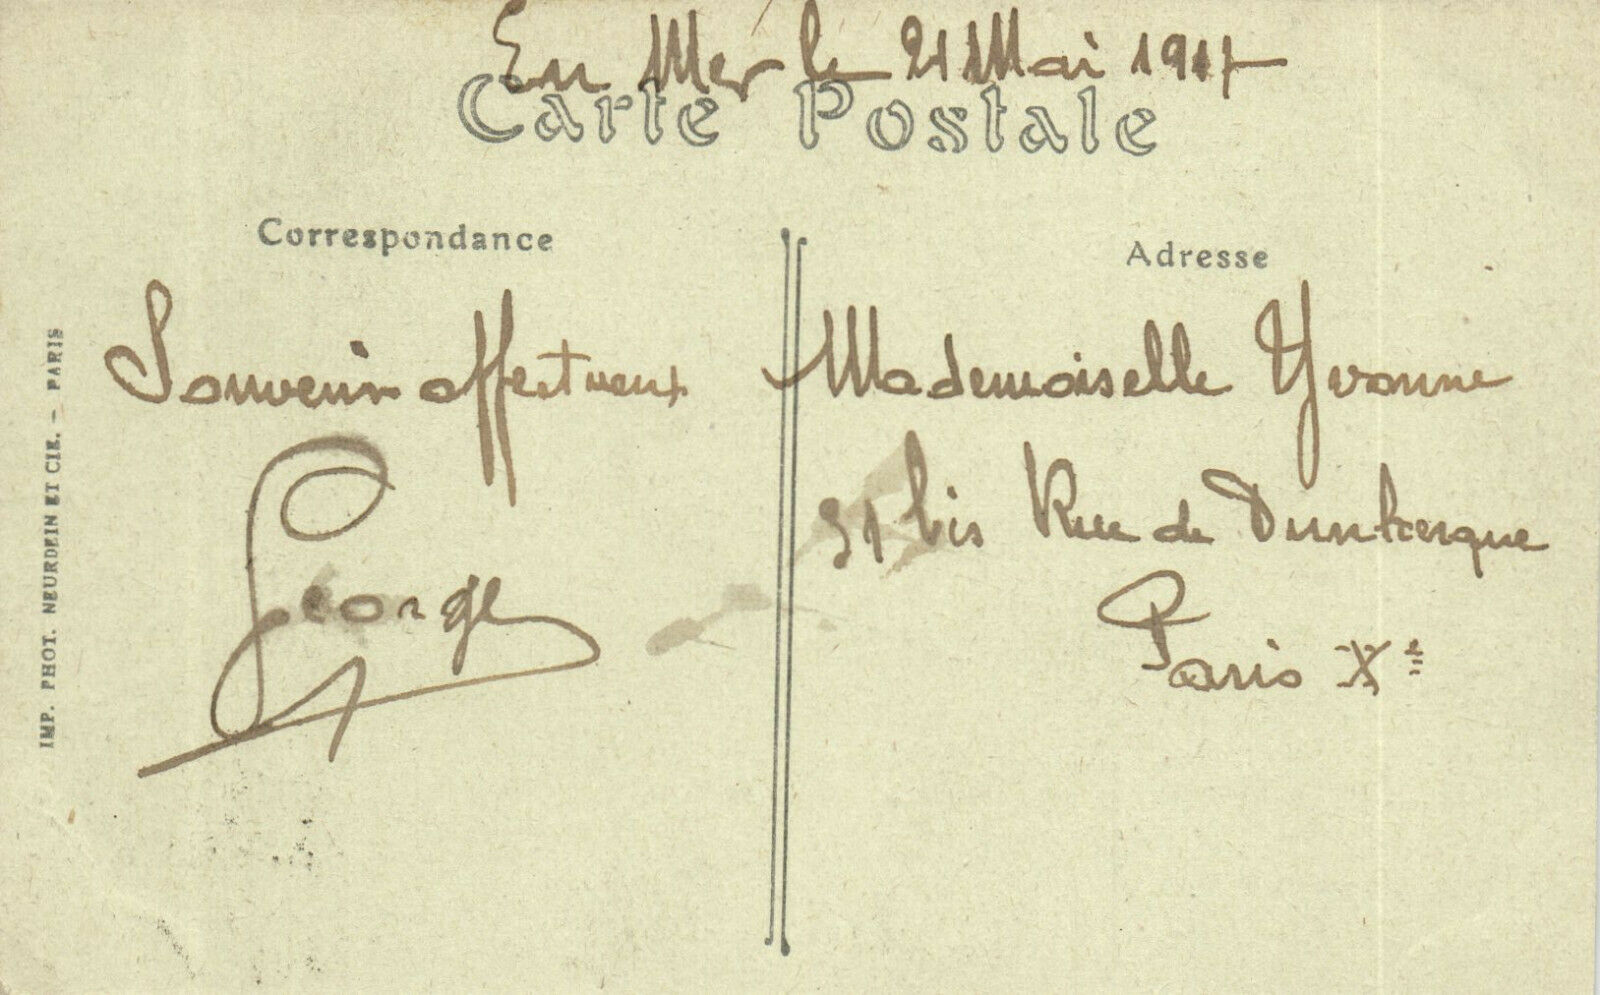 En Mer le 21 Mai 1917
Carte Postale
Correspondance
Adresse
IMP. PHOT. NEURDEIN ET CIE. – PARIS
Souvenir affectueux
George
Mademoiselle Yvonne
91 bis Rue de Dunkerque
Paris Xe